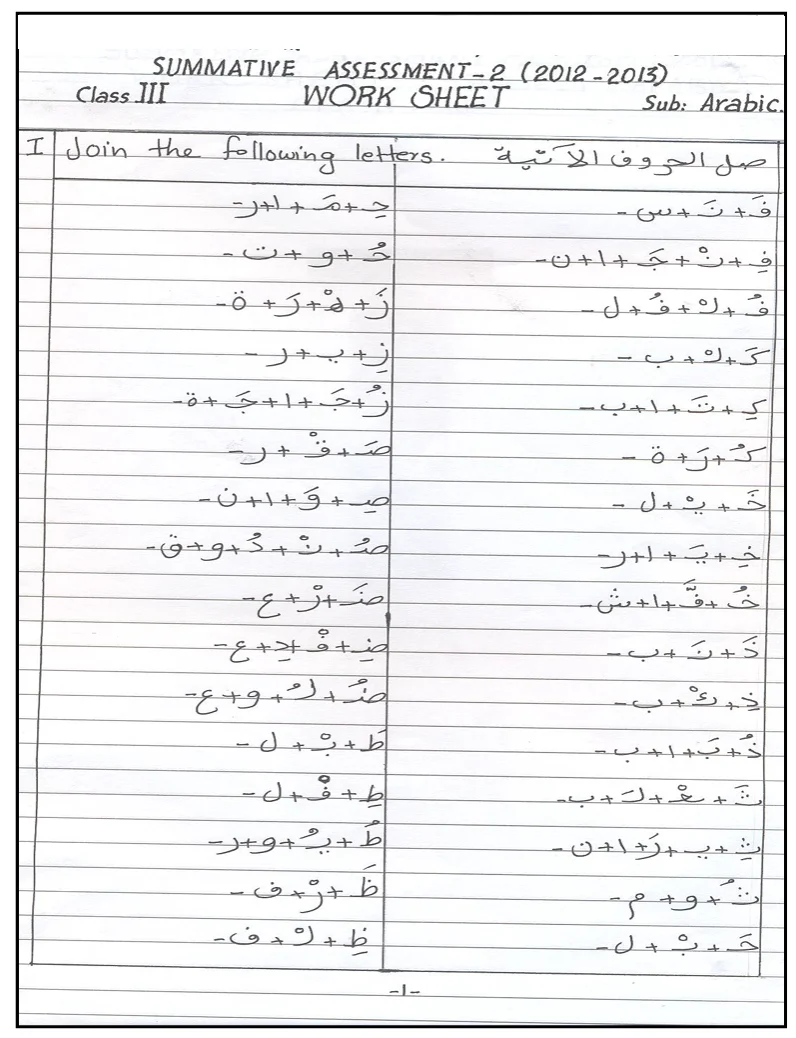 SUMMATIVE ASSESSMENT-2 (2012-2013)
Class III WORK SHEET Sub: Arabic.
I Join the following letters. صل الحروف الآتية
فَ + نَ + س -
حِ + مَ + ا + ر -
فِ + نْ + جَ + ا + ن -
حُ + و + ت -
فُ + لْ + فُ + ل -
زَ + هْ + رَ + ة -
كَ + لْ + ب -
زِ + ي + ر -
كِ + تَ + ا + ب -
زُ + جَ + ا + جَ + ة -
كُ + رَ + ة -
صَ + قْ + ر -
خَ + يْ + ل -
صِ + وَ + ا + ن -
خِ + يَ + ا + ر -
صُ + نْ + دُ + و + ق -
خُ + فَّ + ا + ش -
ضَ + رْ + ع -
ذَ + نَ + ب -
ضِ + فْ + دِ + ع -
ذِ + ئْ + ب -
ضُ + لُ + و + ع -
ذُ + بَ + ا + ب -
طَ + بْ + ل -
ثَ + عْ + لَ + ب -
طِ + فْ + ل -
ثِ + ي + رَ + ا + ن -
طُ + يُ + و + ر -
ثُ + و + م -
ظَ + رْ + ف -
حَ + بْ + ل -
ظِ + لْ + ف -
-1-